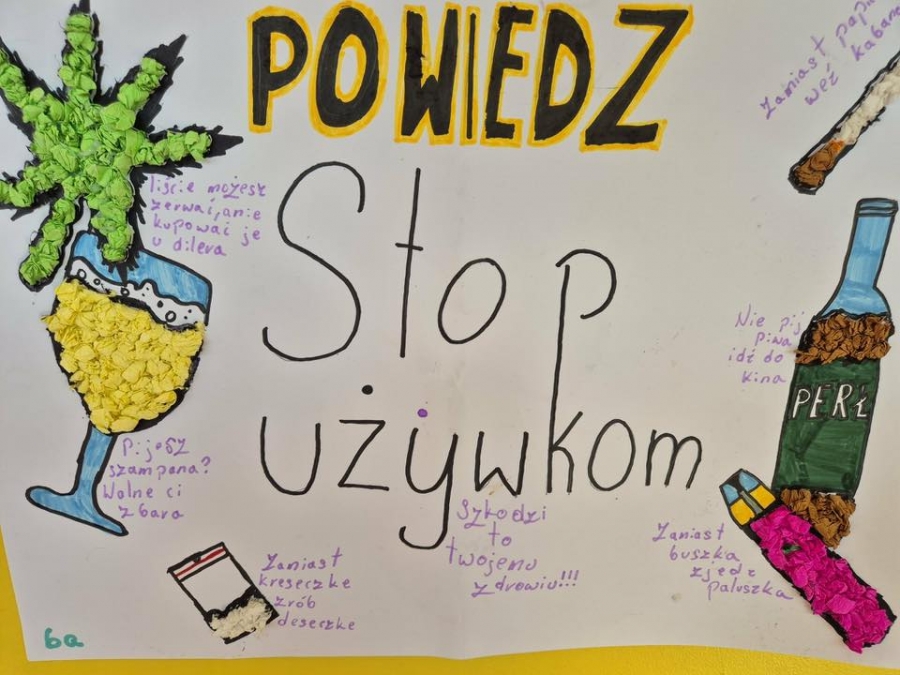 POWIEDZ
Stop
używkom
Szkodzi
to
twojemu
zdrowiu!!!
liście możesz
zerwać, a nie
kupować je
u dilera
Pijesz
szampana?
Wolne ci
zbara
Zamiast
kreseczke
zrób
deseczke
6a
Zamiast
weź
Nie pij
piwa
idź do
kina
PERŁ
Zamiast
buszka
zjedz
paluszka